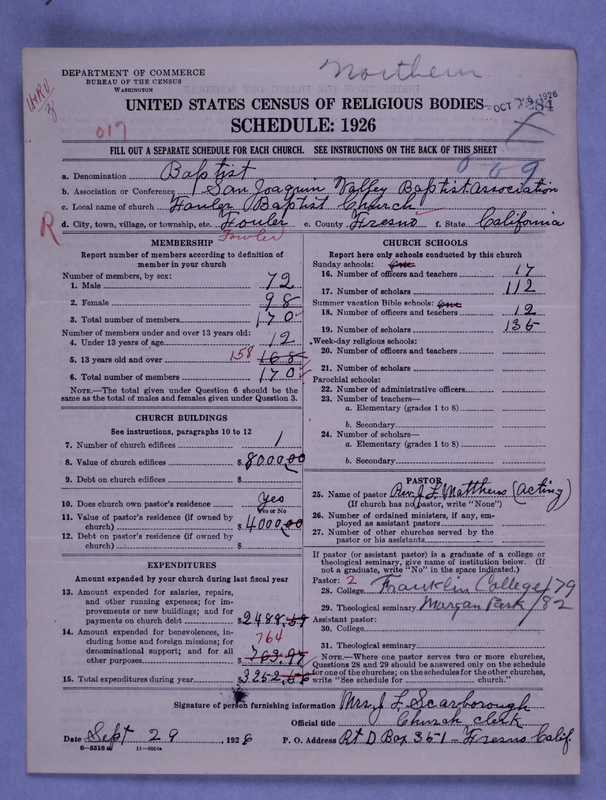 DEPARTMENT OF COMMERCE
BUREAU OF THE CENSUS
WASHINGTON
Northern
UNITED STATES CENSUS OF RELIGIOUS BODIES
OCT 1926
SCHEDULE: 1926
017
FILL OUT A SEPARATE SCHEDULE FOR EACH CHURCH. SEE INSTRUCTIONS ON THE BACK OF THIS SHEET
a. Denomination Baptist
b. Association or Conference San Joaquin Valley Baptist Association
c. Local name of church Fowler Baptist Church
R d. City, town, village, or township, etc. Fowler e. County Fresno f. State California
Fowler
MEMBERSHIP
Report number of members according to definition of
member in your church
Number of members, by sex:
1. Male 72
2. Female 98
3. Total number of members 170
Number of members under and over 13 years old:
4. Under 13 years of age 12
5. 13 years old and over 158 168
6. Total number of members 170
NOTE.—The total given under Question 6 should be the
same as the total of males and females given under Question 3.
CHURCH BUILDINGS
See instructions, paragraphs 10 to 12
7. Number of church edifices 1
8. Value of church edifices $8000.00
9. Debt on church edifices $
10. Does church own pastor's residence? Yes
Yes or No
11. Value of pastor's residence (if owned by
church) $4000.00
12. Debt on pastor's residence (if owned by
church) $
EXPENDITURES
Amount expended by your church during last fiscal year
13. Amount expended for salaries, repairs,
and other running expenses; for im-
provements or new buildings; and for
payments on church debt $2488.69
14. Amount expended for benevolences, in-
cluding home and foreign missions; for
denominational support; and for all
other purposes 764 $763.97
15. Total expenditures during year $3252.66
CHURCH SCHOOLS
Report here only schools conducted by this church
Sunday schools: One
16. Number of officers and teachers 17
17. Number of scholars 112
Summer vacation Bible schools: One
18. Number of officers and teachers 12
19. Number of scholars 136
Week-day religious schools:
20. Number of officers and teachers
21. Number of scholars
Parochial schools:
22. Number of administrative officers
23. Number of teachers—
a. Elementary (grades 1 to 8)
b. Secondary
24. Number of scholars—
a. Elementary (grades 1 to 8)
b. Secondary
PASTOR
25. Name of pastor Rev. J L Matthews (Acting)
(If church has no pastor, write "None")
26. Number of ordained ministers, if any, em-
ployed as assistant pastors
27. Number of other churches served by the
pastor or his assistants
If pastor (or assistant pastor) is a graduate of a college or
theological seminary, give name of institution below. (If
not a graduate, write "No" in the space indicated.)
Pastor: 2
28. College Franklin College/79
29. Theological seminary Morgan Park/82
Assistant pastor:
30. College
31. Theological seminary
NOTE.—Where one pastor serves two or more churches,
Questions 28 and 29 should be answered only on the schedule
for one of the churches; on the schedules for the other churches,
write "See schedule for church."
Signature of person furnishing information Mrs J L Scarborough
Official title Church Clerk
Date Sept 29, 1926 P. O. Address Rt D Box 361 - Fresno Calif.
8-5518